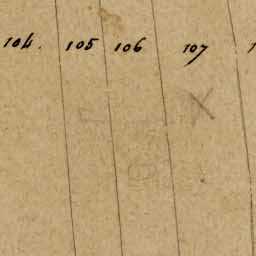 104. 105 106 107
X